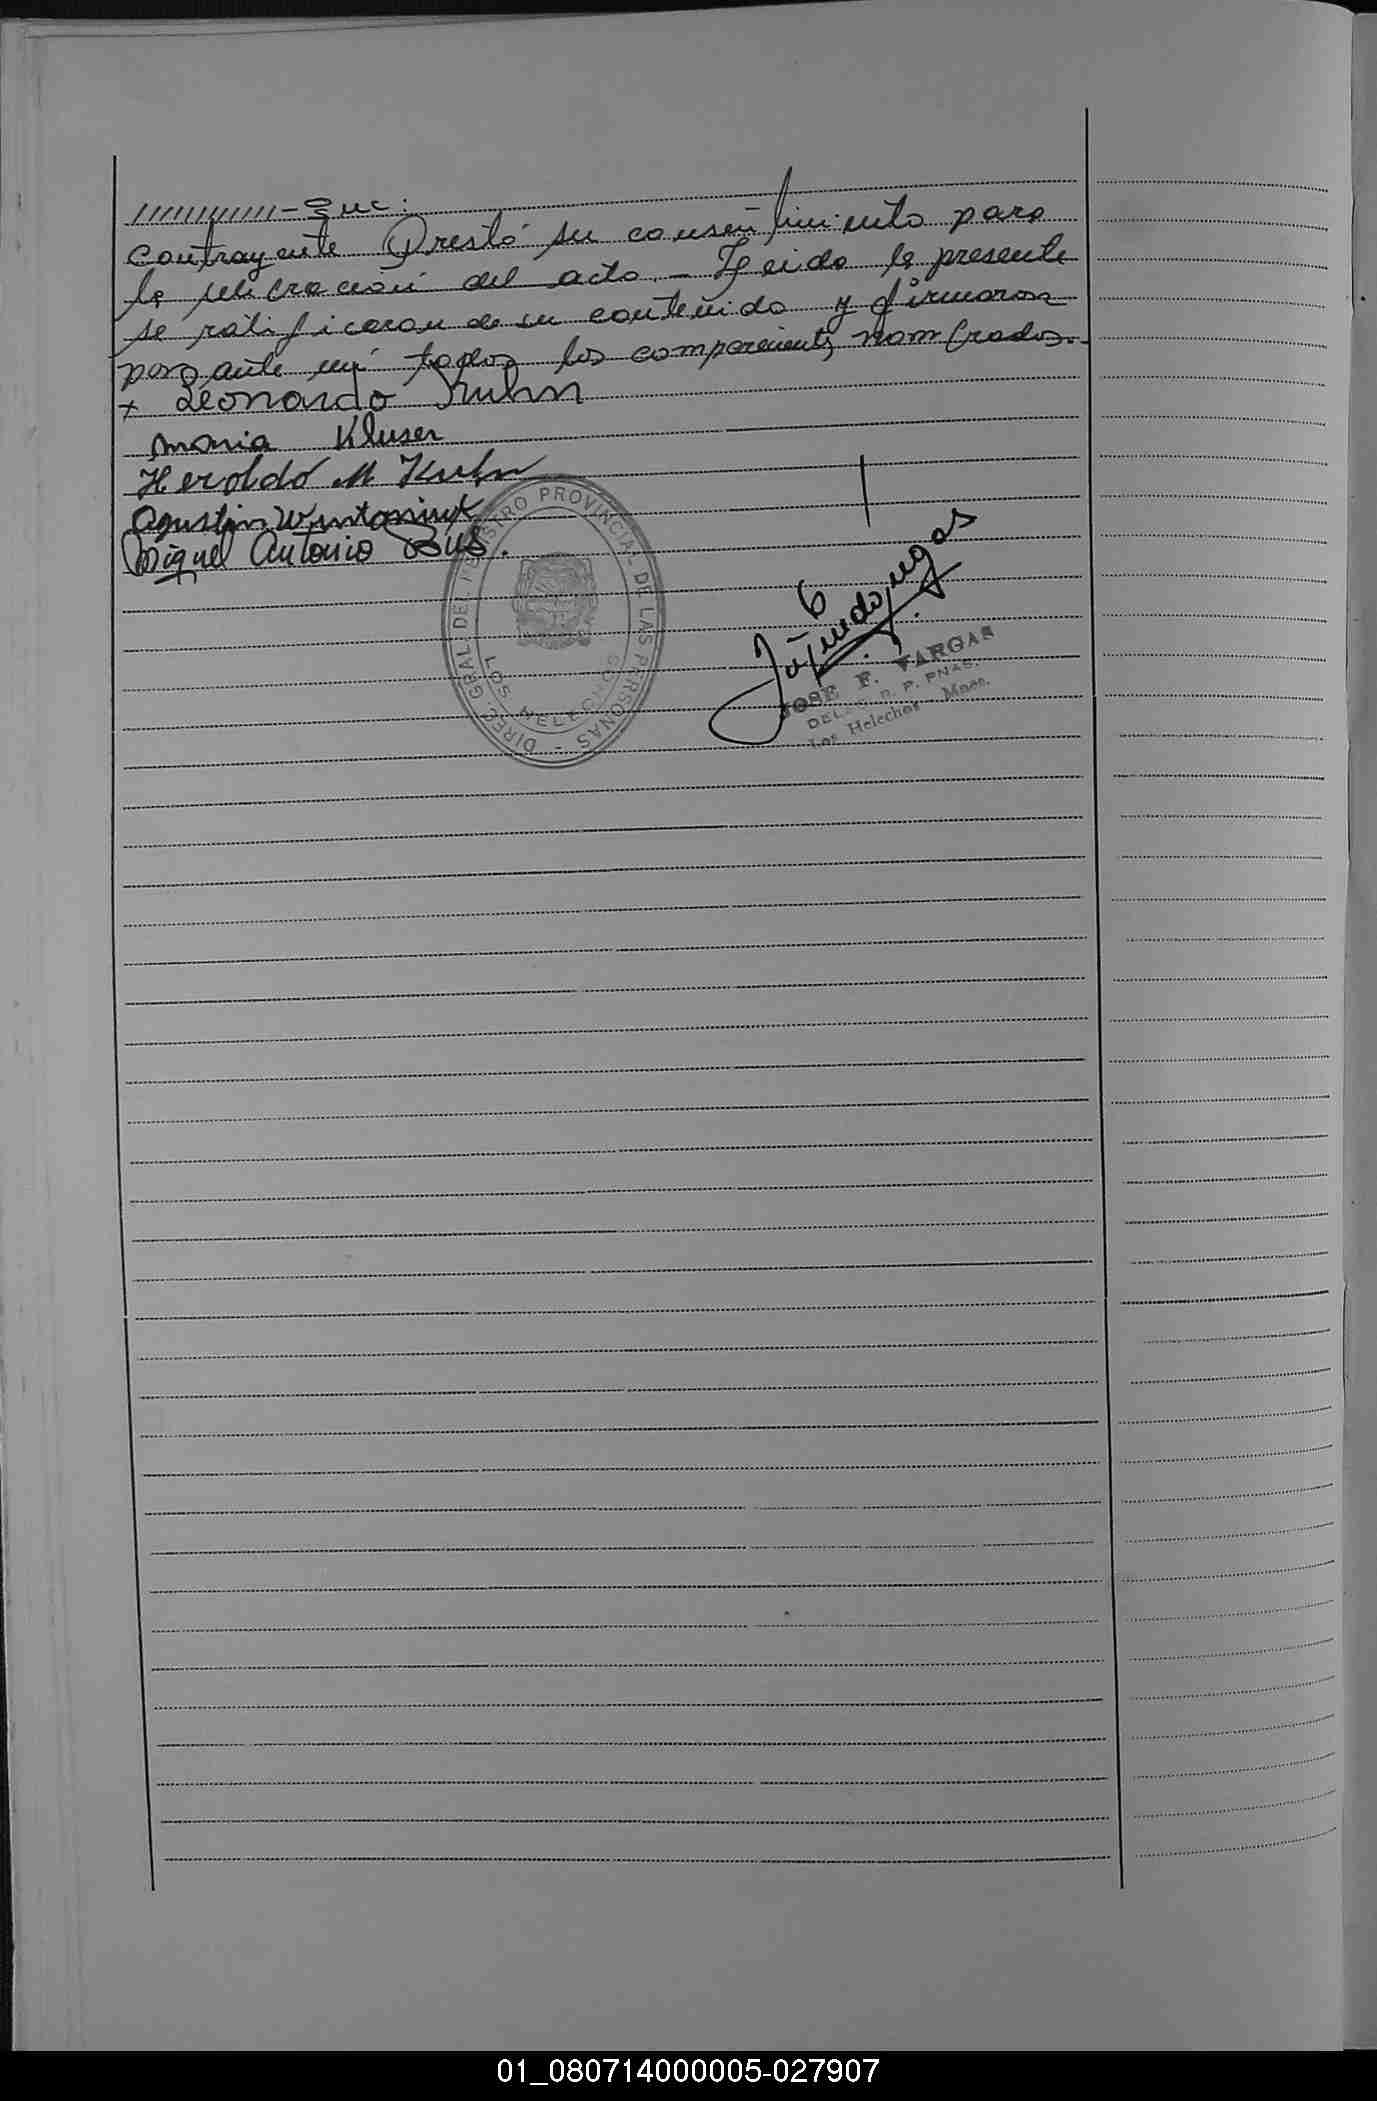 ///////////// - que:
contrayente Prestó su consentimiento para
la celebración del acto. - Leida la presente
se ratificaron de su contenido y firmaron
por ante mí todos los comparecientes nombrados.-
+ Leonardo Kuhn
Maria Kluser
Heroldo M Kuhn
Agustin Wintoniuk
Miguel Antonio Bys.
DIREC. GRAL. DEL REGISTRO PROVINCIAL DE LAS PERSONAS -
LOS HELECHOS
JOSE F. VARGAS
DELEG. R. P. PNAS.
Los Helechos - Mnes.
01_080714000005-027907